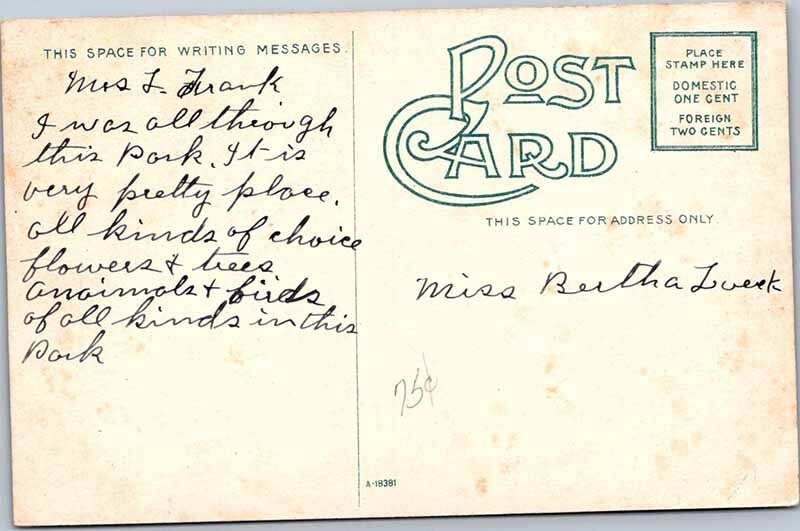 THIS SPACE FOR WRITING MESSAGES.
Mrs L. Frank
I was all through
this Park. It is
very pretty place.
all kinds of choice
flowers & trees
anaimals & birds
of all kinds in this
Park
POST
CARD
PLACE
STAMP HERE
DOMESTIC
ONE CENT
FOREIGN
TWO CENTS
THIS SPACE FOR ADDRESS ONLY.
Miss Bertha
75¢
A-18381